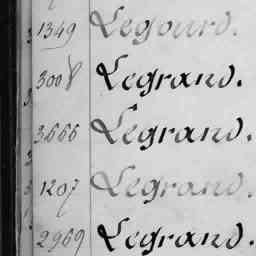 1349 Legourd.
3008 Legrand.
3666 Legrand.
1207 Legrand.
2969 Legrand.